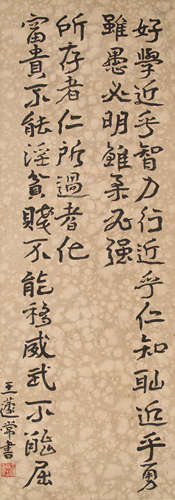 好學近乎智力行近乎仁知恥近乎勇
雖愚必明雖柔必强
所存者仁所過者化
富貴不能淫貧賤不能移威武不能屈
王蘧常書